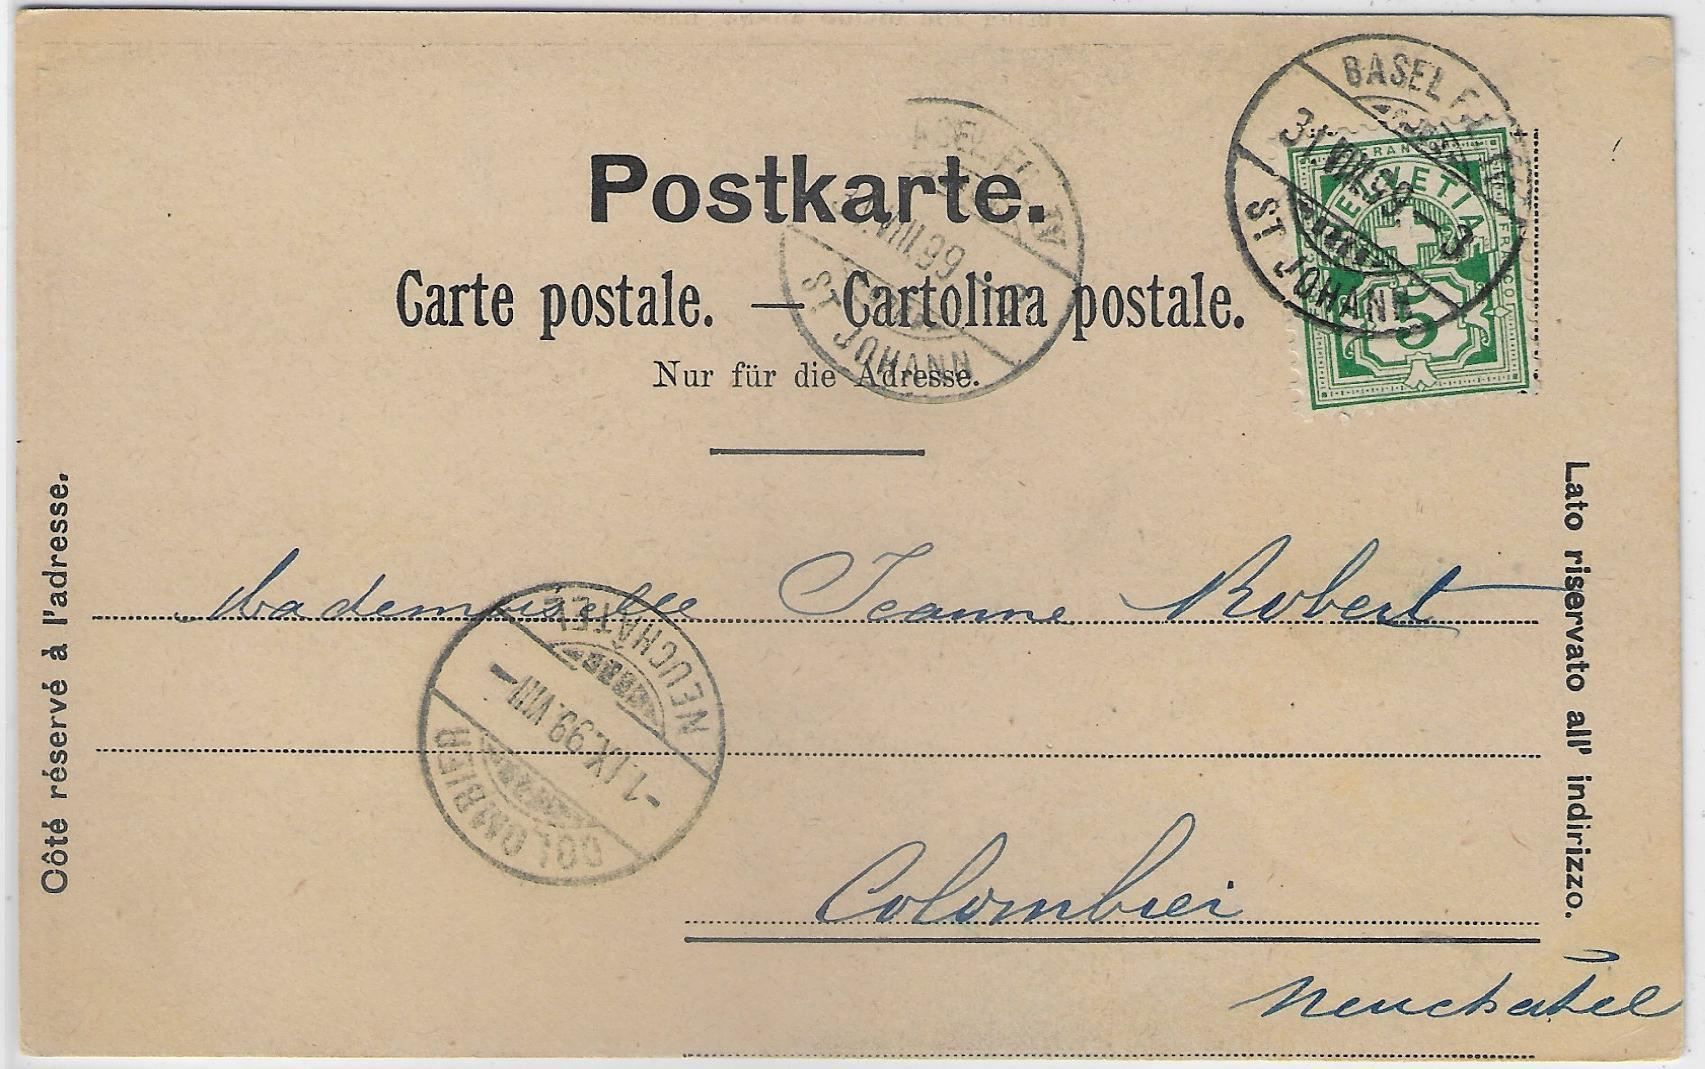 Postkarte.
Carte postale. — Cartolina postale.
Nur für die Adresse.
Côté réservé à l'adresse.
Lato riservato all' indirizzo.
BASEL
31.VIII.99.
ST. JOHANN
VIII.99
ST. JOHANN
HELVETIA
FRANCO
5
Mademoiselle Jeanne Robert
NEUCHÂTEL
-1.IX.99.VIII-
COLOMBIER
Colombier
Neuchatel